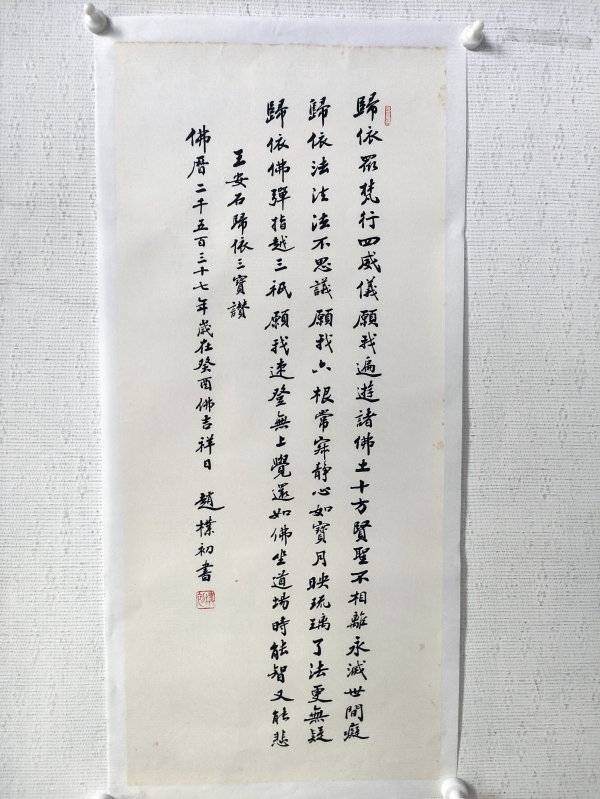 歸依眾梵行四威儀願我遍遊諸佛土十方賢聖不相離永滅世間癡
歸依法法法不思議願我六根常寂靜心如寶月映琉璃了法更無疑
歸依佛彈指越三祇願我速登無上覺還如佛坐道場時能智又能悲
王安石歸依三寶讃
佛曆二千五百三十七年歲在癸酉佛吉祥日 趙樸初書